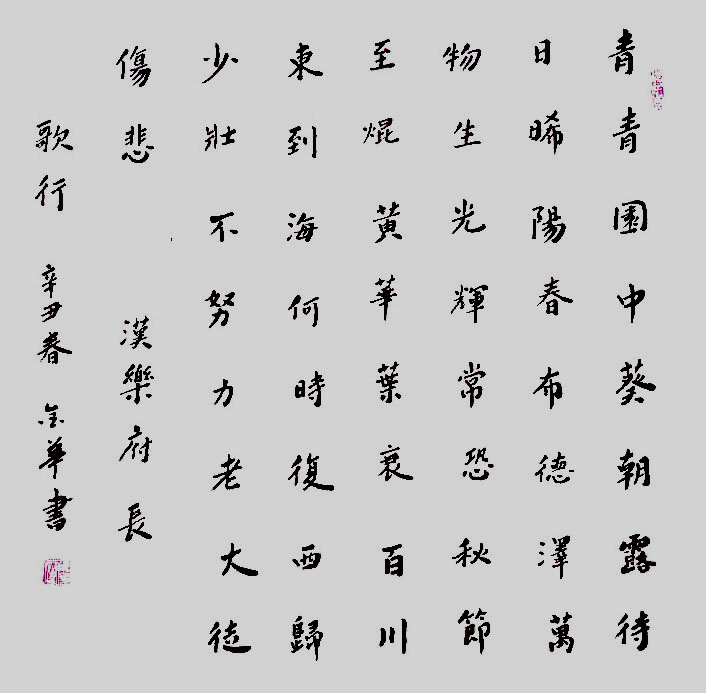 青青園中葵朝露待
日晞陽春布德澤萬
物生光輝常恐秋節
至焜黃華葉衰百川
東到海何時復西歸
少壯不努力老大徒
傷悲 漢樂府 長
歌行 辛丑春 金華書